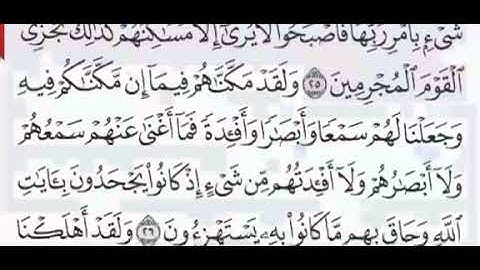 شَىْءٍۭ بِأَمْرِ رَبِّهَا فَأَصْبَحُوا۟ لَا يُرَىٰٓ إِلَّا مَسَـٰكِنُهُمْ ۚ كَذَٰلِكَ نَجْزِى
ٱلْقَوْمَ ٱلْمُجْرِمِينَ ٢٥ وَلَقَدْ مَكَّنَّـٰهُمْ فِيمَآ إِن مَّكَّنَّـٰكُمْ فِيهِ
وَجَعَلْنَا لَهُمْ سَمْعًا وَأَبْصَـٰرًا وَأَفْـِٔدَةً فَمَآ أَغْنَىٰ عَنْهُمْ سَمْعُهُمْ
وَلَآ أَبْصَـٰرُهُمْ وَلَآ أَفْـِٔدَتُهُم مِّن شَىْءٍ إِذْ كَانُوا۟ يَجْحَدُونَ بِـَٔايَـٰتِ
ٱللَّهِ وَحَاقَ بِهِم مَّا كَانُوا۟ بِهِۦ يَسْتَهْزِءُونَ ٢٦ وَلَقَدْ أَهْلَكْنَا